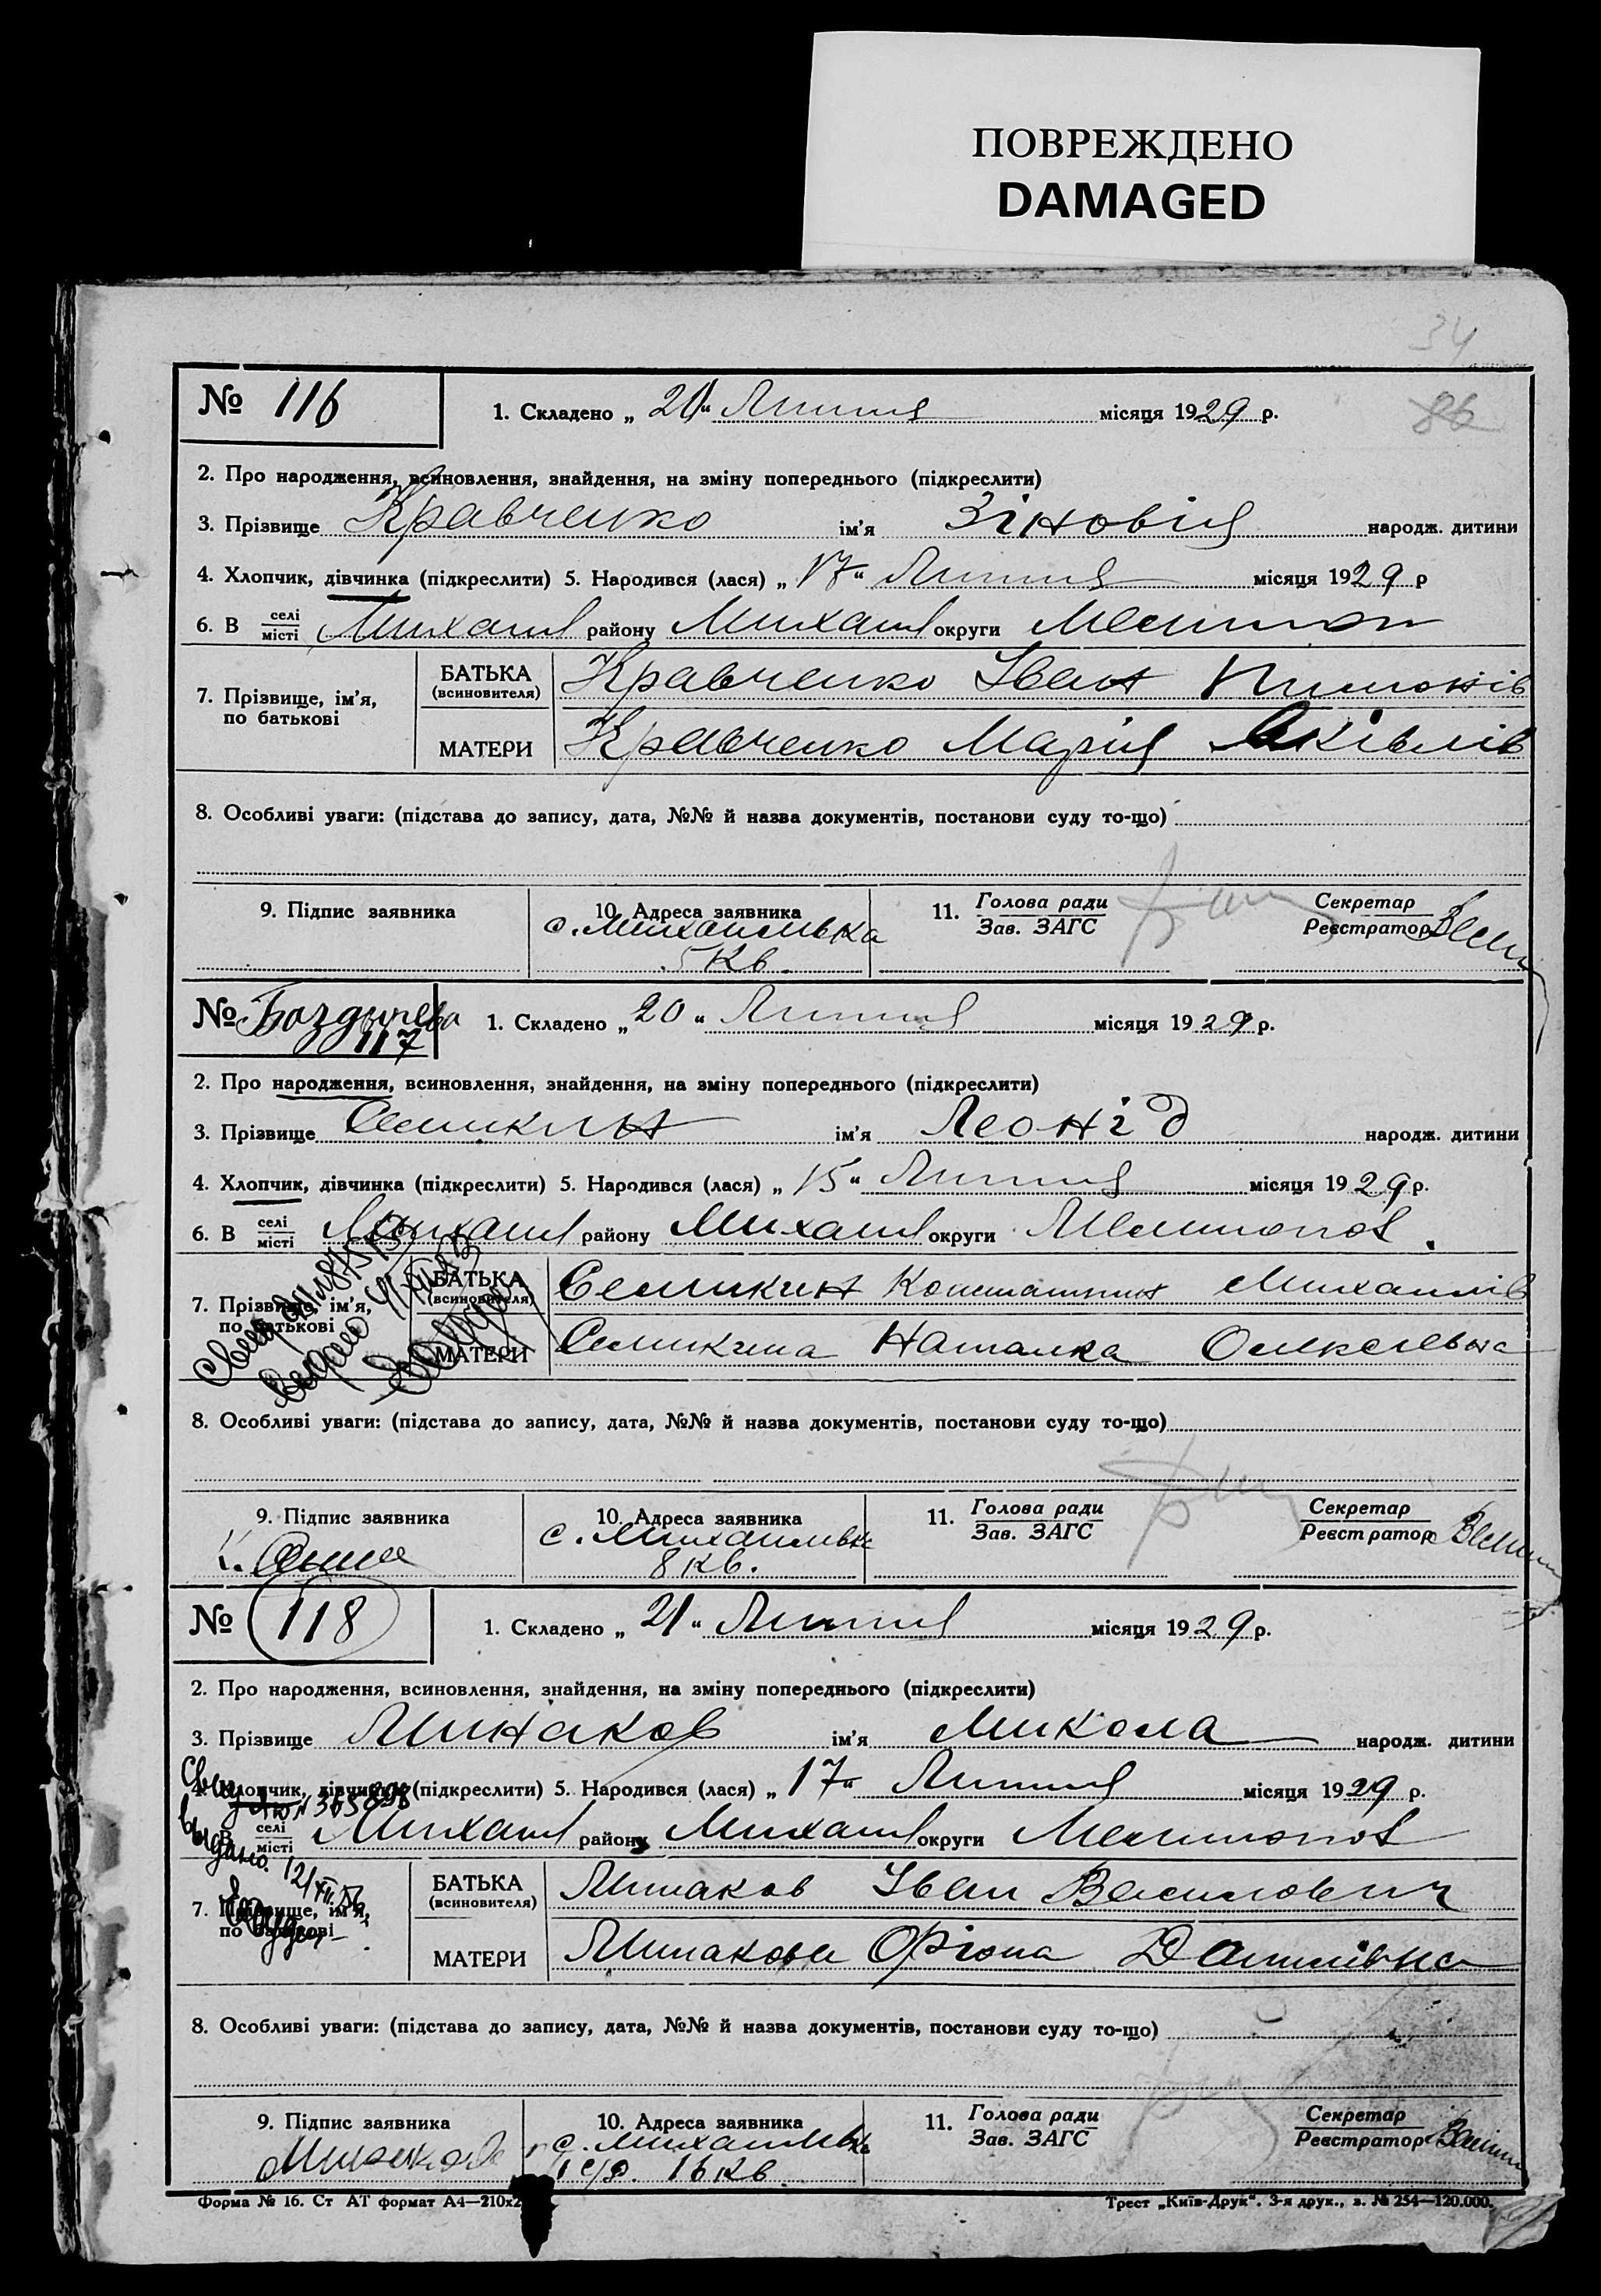 ПОВРЕЖДЕНО
DAMAGED
34
86
№ 116 1. Складено „ 21 “ Липня місяця 1929 р.
2. Про народження, всиновлення, знайдення, на зміну попереднього (підкреслити)
3. Прізвище Кравченко ім'я Зіновія народж. дитини
4. Хлопчик, дівчинка (підкреслити) 5. Народився (лася) „ 17 “ Липня місяця 1929 р
6. В селі/місті Михайл району Михайл округи Мелитоп
7. Прізвище, ім'я, по батькові
БАТЬКА (всиновителя) Кравченко Іван
МАТЕРИ Кравченко Марія
8. Особливі уваги: (підстава до запису, дата, №№ й назва документів, постанови суду то-що)
9. Підпис заявника 10. Адреса заявника 11. Голова ради Секретар
с. Михайлівка Зав. ЗАГС Реєстратор
5 Кв.
№ 117 1. Складено „ 20 “ Липня місяця 1929 р.
2. Про народження, всиновлення, знайдення, на зміну попереднього (підкреслити)
3. Прізвище Селикин ім'я Леонід народж. дитини
4. Хлопчик, дівчинка (підкреслити) 5. Народився (лася) „ 15 “ Липня місяця 1929 р.
6. В селі/місті Михайл району Михайл округи Мелитопол.
7. Прізвище, ім'я, по батькові
БАТЬКА (всиновителя) Селикин Константин Михайлів
МАТЕРИ Селикина Наталка Олексіевна
8. Особливі уваги: (підстава до запису, дата, №№ й назва документів, постанови суду то-що)
9. Підпис заявника 10. Адреса заявника 11. Голова ради Секретар
с. Михайлівка Зав. ЗАГС Реєстратор
8 Кв.
№ 118 1. Складено „ 21 “ Липня місяця 1929 р.
2. Про народження, всиновлення, знайдення, на зміну попереднього (підкреслити)
3. Прізвище Минаков ім'я Микола народж. дитини
4. Хлопчик, дівчинка (підкреслити) 5. Народився (лася) „ 17 “ Липня місяця 1929 р.
6. В селі/місті Михайл району Михайл округи Мелитопол
выдано
7. Прізвище, ім'я, по батькові
БАТЬКА (всиновителя) Минаков Іван Василович
МАТЕРИ Минакова Орина Данилівна
8. Особливі уваги: (підстава до запису, дата, №№ й назва документів, постанови суду то-що)
9. Підпис заявника 10. Адреса заявника 11. Голова ради Секретар
Минаков с. Михайлівка Зав. ЗАГС Реєстратор
16 Кв
Форма № 16. Ст АТ формат А4—210х2
Трест „Київ-Друк“. 3-я друк., з. № 254—120.000.